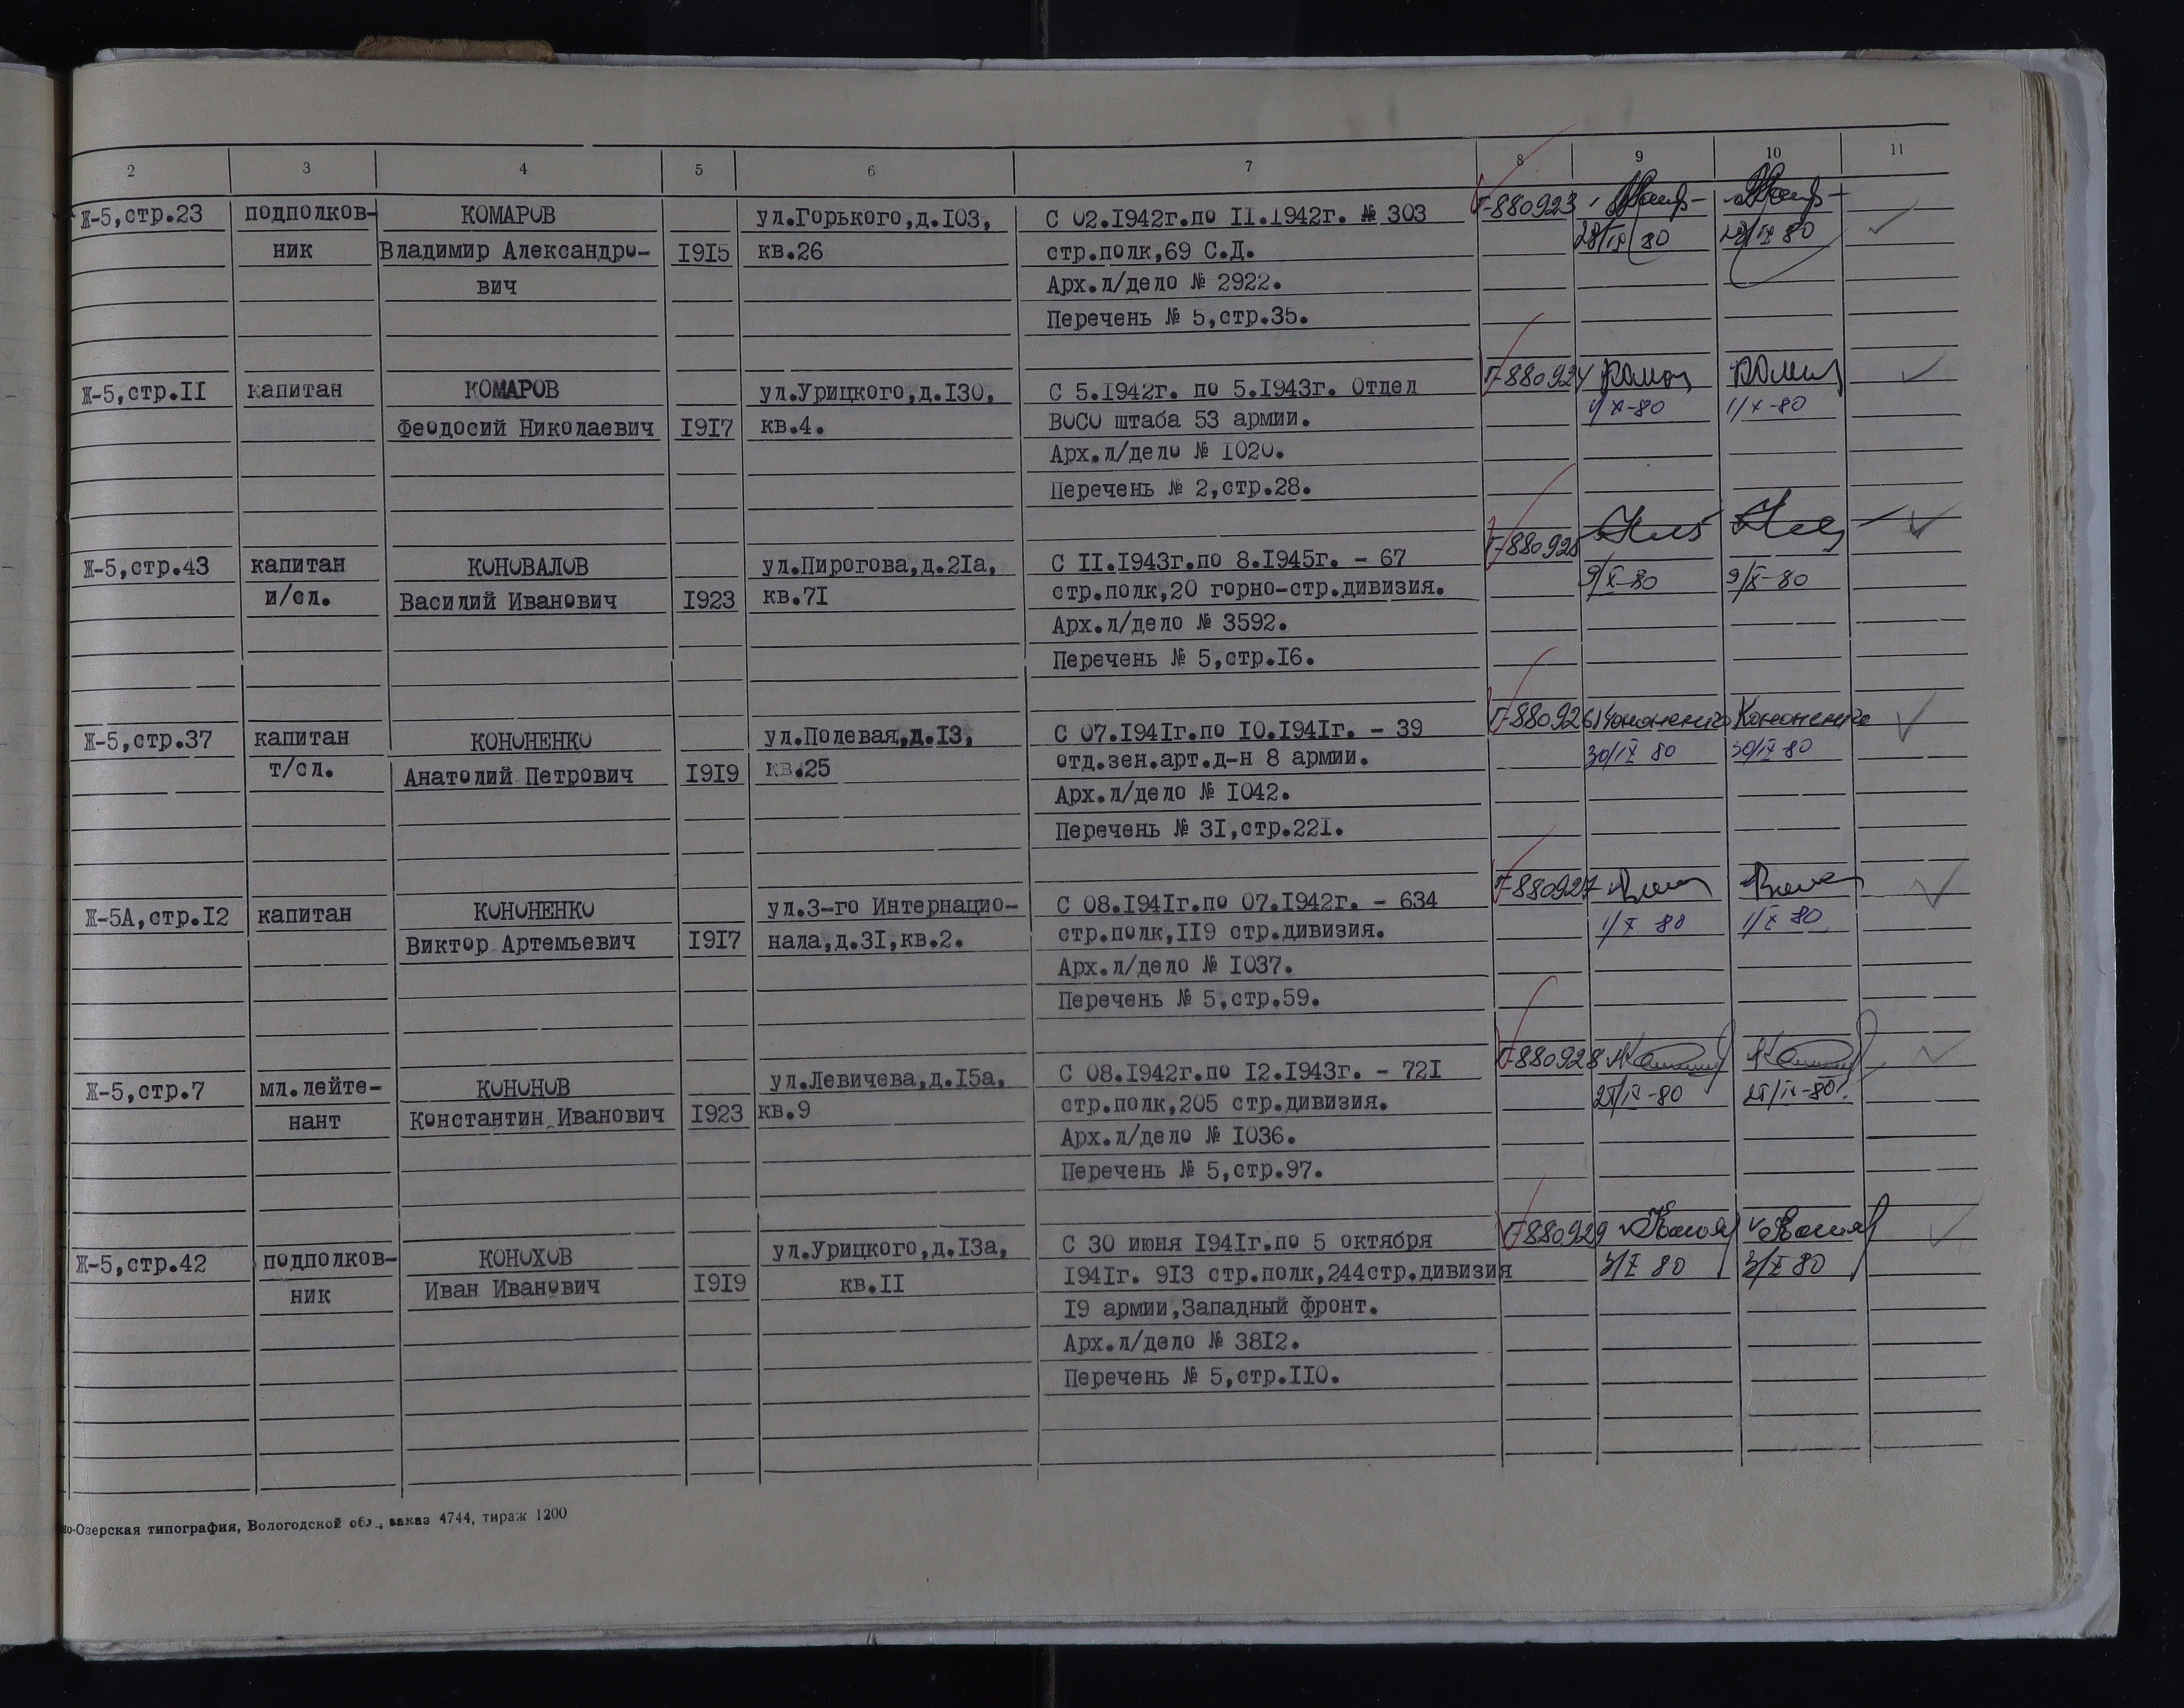 2 3 4 5 6 7 8 9 10 11
Ж-5,стр.23 подполков- КОМАРОВ ул.Горького,д.103, С 02.1942г.по 11.1942г. № 303 Г-880923
ник Владимир Александро- 1915 кв.26 стр.полк,69 С.Д. 28/IX 80 28/IX 80
вич Арх.л/дело № 2922.
Перечень № 5,стр.35.
Ж-5,стр.11 капитан КОМАРОВ ул.Урицкого,д.130, С 5.1942г. по 5.1943г. Отдел Г-880924
Феодосий Николаевич 1917 кв.4. ВОСО штаба 53 армии. 1/X-80 1/X-80
Арх.л/дело № 1020.
Перечень № 2,стр.28.
Ж-5,стр.43 капитан КОНОВАЛОВ ул.Пирогова,д.21а, С 11.1943г.по 8.1945г. - 67 Г-880925
и/сл. Василий Иванович 1923 кв.71 стр.полк,20 горно-стр.дивизия. 9/X-80 9/X-80
Арх.л/дело № 3592.
Перечень № 5,стр.16.
Ж-5,стр.37 капитан КОНОНЕНКО ул.Полевая,д.13, С 07.1941г.по 10.1941г. - 39 Г-880926 Кононенко Кононенко
т/сл. Анатолий Петрович 1919 кв.25 отд.зен.арт.д-н 8 армии. 30/IX 80 30/IX-80
Арх.л/дело № 1042.
Перечень № 31,стр.221.
Ж-5А,стр.12 капитан КОНОНЕНКО ул.3-го Интернацио- С 08.1941г.по 07.1942г. - 634 Г-880927
Виктор Артемьевич 1917 нала,д.31,кв.2. стр.полк,119 стр.дивизия. 1/X 80 1/X 80
Арх.л/дело № 1037.
Перечень № 5,стр.59.
Ж-5,стр.7 мл.лейте- КОНОНОВ ул.Левичева,д.15а, С 08.1942г.по 12.1943г. - 721 Г-880928
нант Константин Иванович 1923 кв.9 стр.полк,205 стр.дивизия.
Арх.л/дело № 1036.
Перечень № 5,стр.97.
Ж-5,стр.42 подполков- КОНОХОВ ул.Урицкого,д.13а, С 30 июня 1941г.по 5 октября Г-880929
ник Иван Иванович 1919 кв.11 1941г. 913 стр.полк,244стр.дивизия 3/X 80 3/X 80
19 армии,Западный фронт.
Арх.л/дело № 3812.
Перечень № 5,стр.110.
но-Озерская типография, Вологодской обл., заказ 4744, тираж 1200